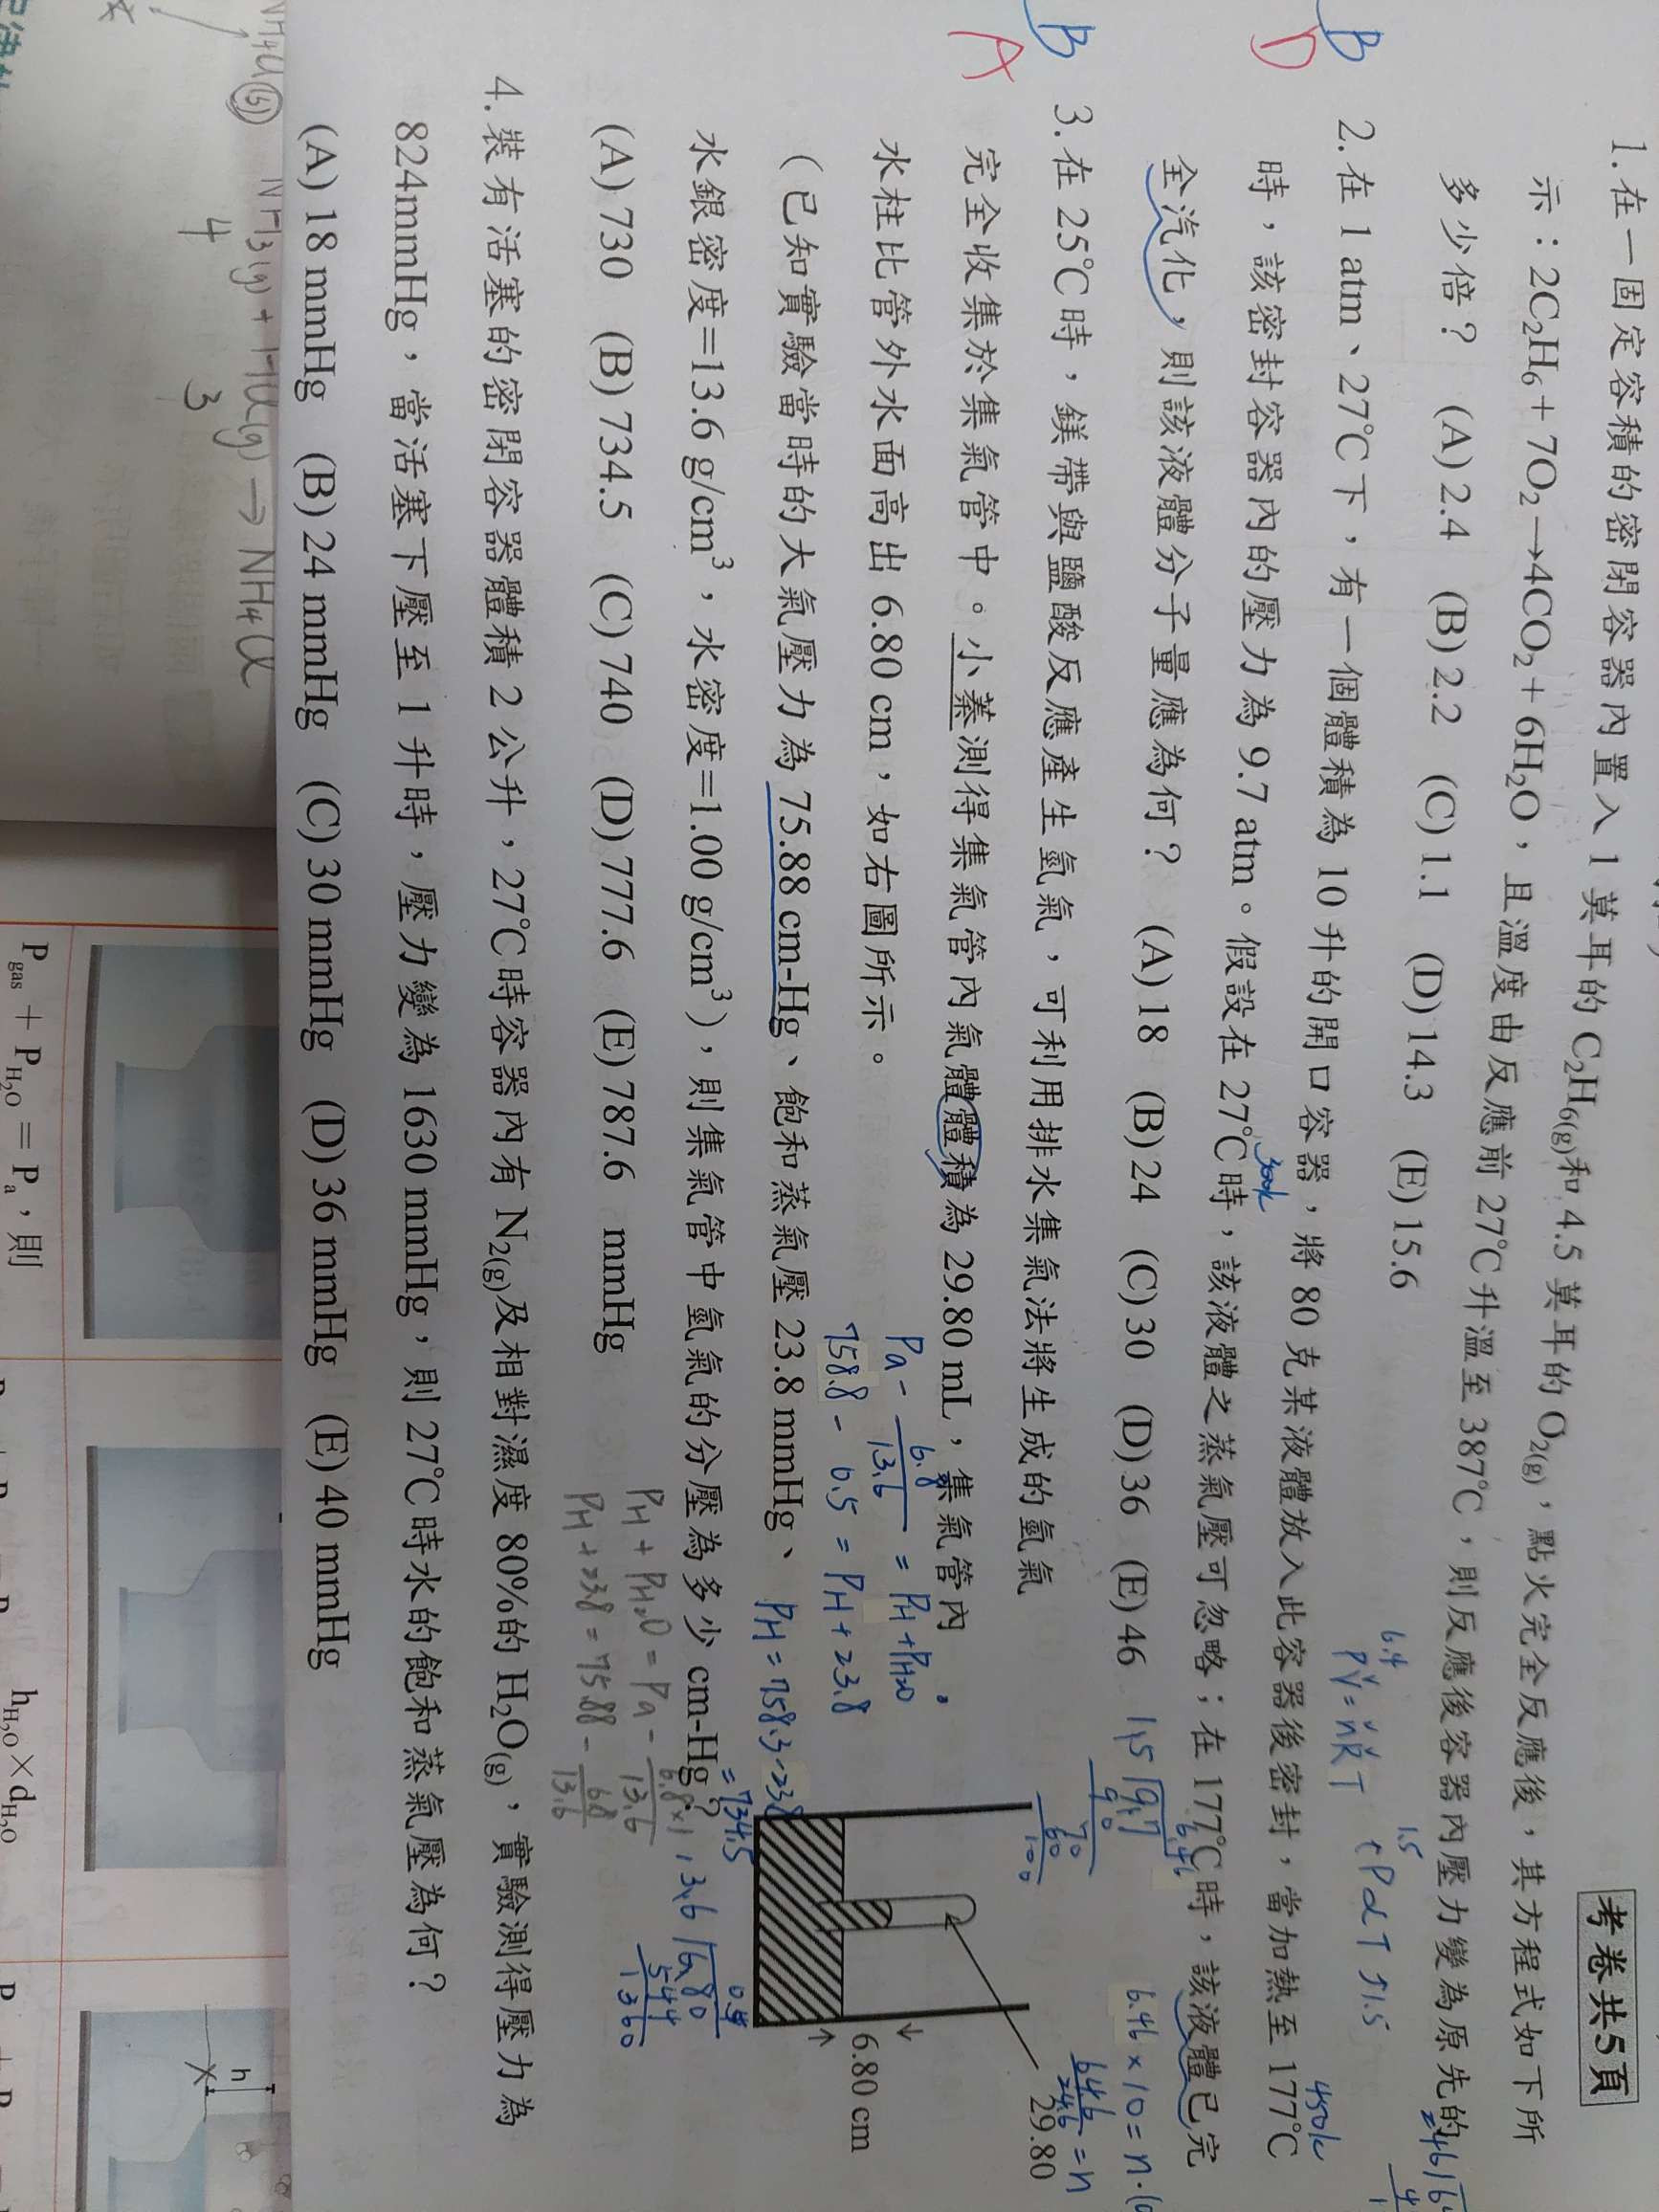 考卷共5頁
1.在一固定容積的密閉容器內置入 1 莫耳的 C₂H₆(g)和 4.5 莫耳的 O₂(g)，點火完全反應後，其方程式如下所
示：2C₂H₆ + 7O₂→4CO₂ + 6H₂O，且溫度由反應前 27℃升溫至 387℃，則反應後容器內壓力變為原先的
多少倍？ (A) 2.4 (B) 2.2 (C) 1.1 (D) 14.3 (E) 15.6
6.4
PV = nRT
1.5
B
D
2.在 1 atm、27℃下，有一個體積為 10 升的開口容器，將 80 克某液體放入此容器後密封，當加熱至 177℃
300k
450k
時，該密封容器內的壓力為 9.7 atm。假設在 27℃時，該液體之蒸氣壓可忽略；在 177℃時，該液體已完
全汽化，則該液體分子量應為何？ (A) 18 (B) 24 (C) 30 (D) 36 (E) 46
1.5 9.7
6.46
90
70
60
100
64.6
24.6 = n
B
A
3.在 25℃時，鎂帶與鹽酸反應產生氫氣，可利用排水集氣法將生成的氫氣
完全收集於集氣管中。小蓁測得集氣管內氣體體積為 29.80 mL，集氣管內
水柱比管外水面高出 6.80 cm，如右圖所示。
（已知實驗當時的大氣壓力為 75.88 cm-Hg、飽和蒸氣壓 23.8 mmHg、
水銀密度=13.6 g/cm³，水密度=1.00 g/cm³），則集氣管中氫氣的分壓為多少 cm-Hg？
(A) 730 (B) 734.5 (C) 740 (D) 777.6 (E) 787.6 mmHg
Pa - 6.8/13.6 = PH + PH₂O
758.8 - 0.5 = PH + 23.8
PH = 758.3 - 23.8
= 734.5
PH + PH₂O = Pa - 6.8×1/13.6
PH + 23.8 = 75.88 - 6.8/13.6
13.6 6.80
544
1360
29.80
6.80 cm
4.裝有活塞的密閉容器體積 2 公升，27℃時容器內有 N₂(g)及相對濕度 80%的 H₂O(g)，實驗測得壓力為
824mmHg，當活塞下壓至 1 升時，壓力變為 1630 mmHg，則 27℃時水的飽和蒸氣壓為何？
(A) 18 mmHg (B) 24 mmHg (C) 30 mmHg (D) 36 mmHg (E) 40 mmHg
NH₃(g) + HCl(g) → NH₄Cl
4 3
P gas + P H₂O = P a，則
h H₂O × d H₂O
h